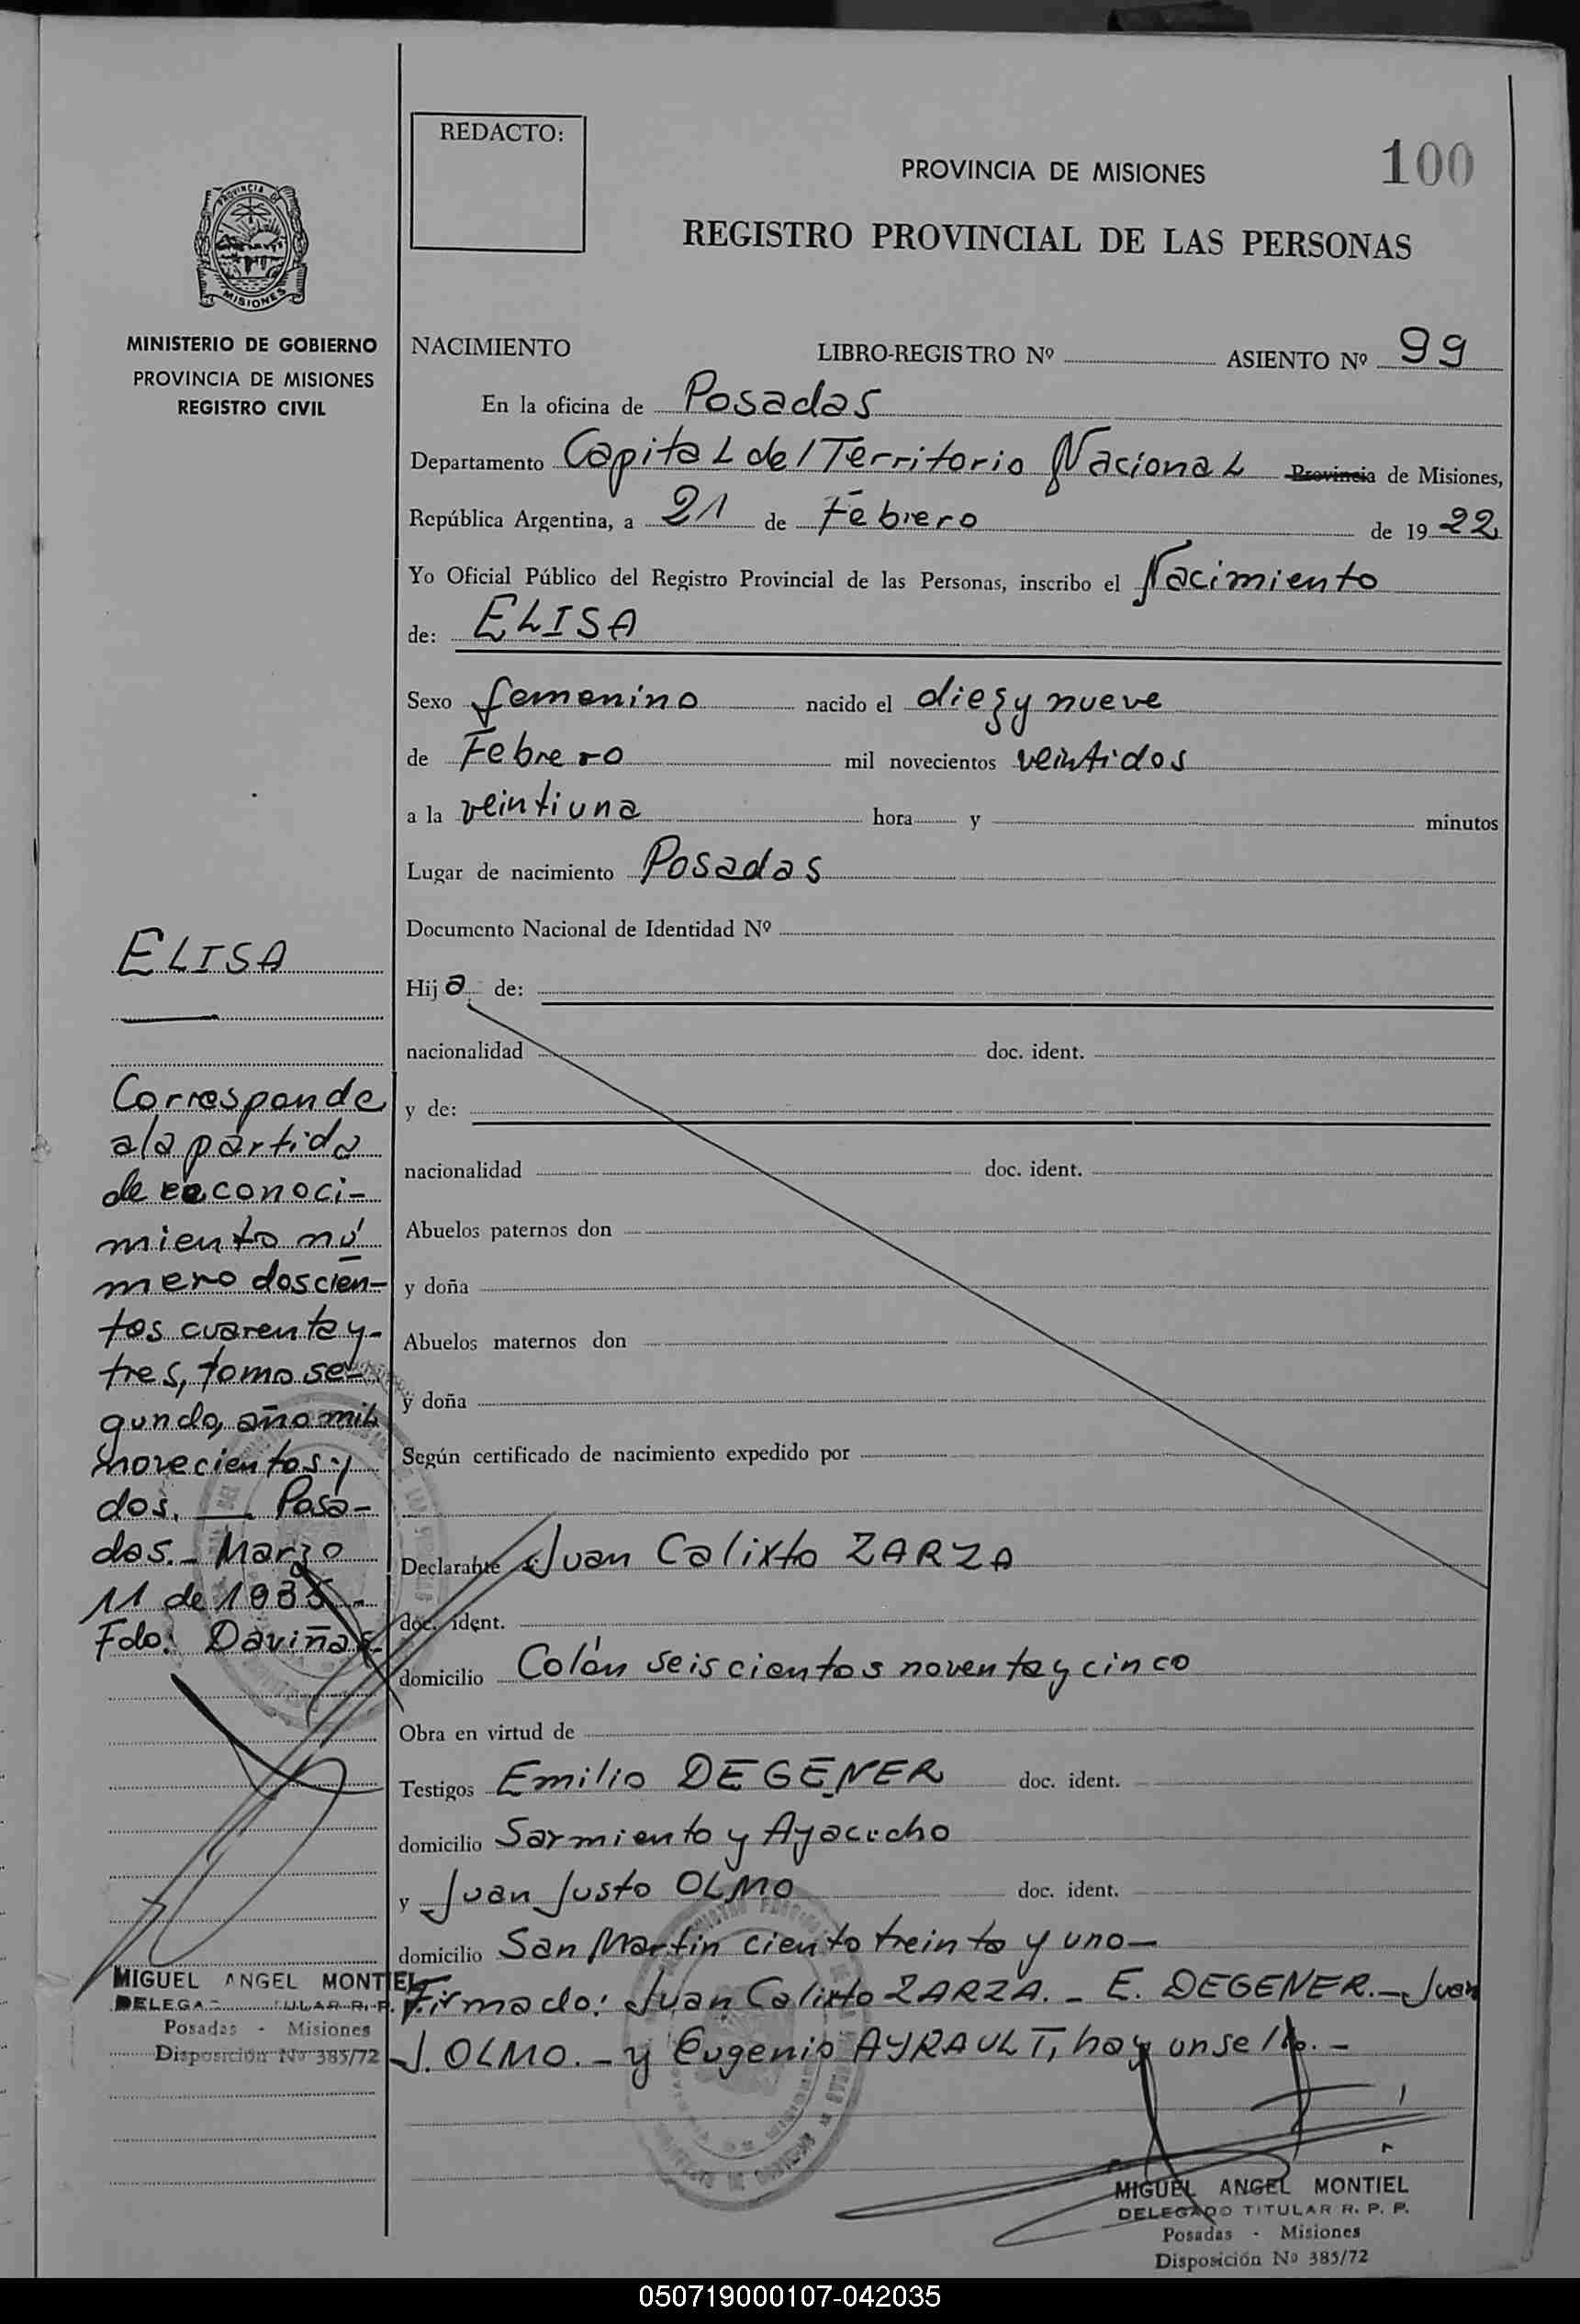 REDACTO:
PROVINCIA DE MISIONES
100
REGISTRO PROVINCIAL DE LAS PERSONAS
PROVINCIA DE
MISIONES
MINISTERIO DE GOBIERNO
PROVINCIA DE MISIONES
REGISTRO CIVIL
NACIMIENTO LIBRO-REGISTRO Nº ASIENTO Nº 99
En la oficina de Posadas
Departamento Capital del Territorio Nacional Provincia de Misiones,
República Argentina, a 21 de Febrero de 1922
Yo Oficial Público del Registro Provincial de las Personas, inscribo el Nacimiento
de: ELISA
Sexo femenino nacido el diez y nueve
de Febrero mil novecientos veintidos
a la veintiuna hora y minutos
Lugar de nacimiento Posadas
Documento Nacional de Identidad Nº
Hija de:
nacionalidad doc. ident.
y de:
nacionalidad doc. ident.
Abuelos paternos don
y doña
Abuelos maternos don
y doña
Según certificado de nacimiento expedido por
Declarante Juan Calixto ZARZA
doc. ident.
domicilio Colón seiscientos noventa y cinco
Obra en virtud de
Testigos Emilio DEGENER doc. ident.
domicilio Sarmiento y Ayacucho
y Juan Justo OLMO doc. ident.
domicilio San Martin ciento treinta y uno-
Firmado: Juan Calixto ZARZA. - E. DEGENER. - Juan
J. OLMO. - y Eugenio AYRAULT, hay un sello. -
MIGUEL ANGEL MONTIEL
DELEGADO TITULAR R. P. P.
Posadas - Misiones
Disposición Nº 385/72
ELISA
Corresponde
a la partida
de reconoci-
miento nú
mero doscien-
tos cuarenta y-
tres, tomo se-
gundo, año mil
novecientos y
dos. Posa-
das. - Marzo
11 de 1935 -
Fdo: Daviñas
MIGUEL ANGEL MONTIEL
DELEGA TULAR R. P. P.
Posadas - Misiones
Disposición Nº 385/72
050719000107-042035